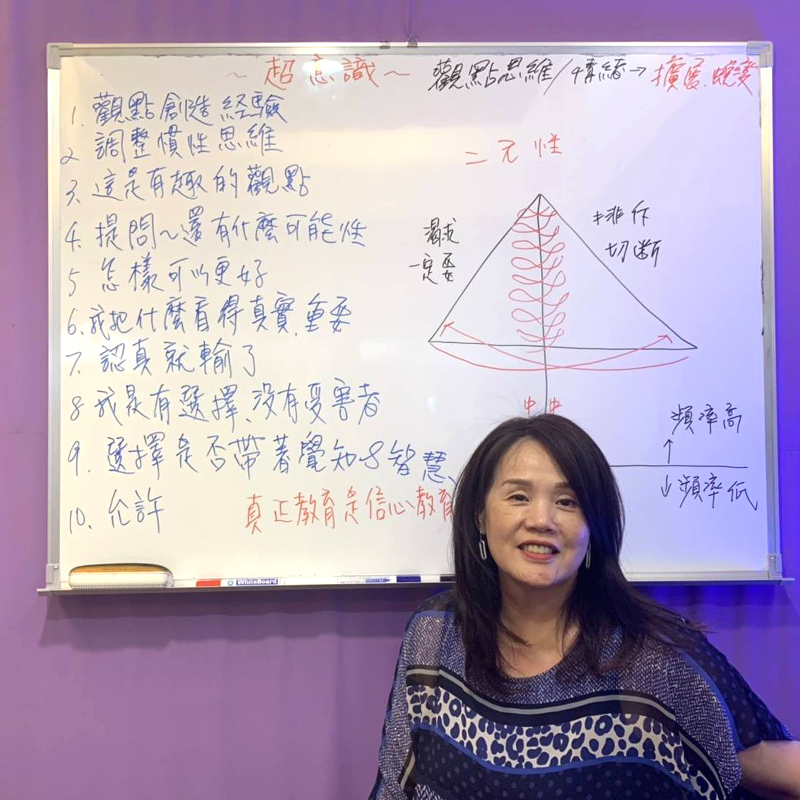 ～超意識～ 觀點思維/情緒→擴展.蛻變
1. 觀點創造経驗
2 調整慣性思維
3. 這是有趣的觀點
4. 提問～還有什麼可能性
5 怎樣可以更好
6. 我把什麼看得真實.重要
7. 認真就輸了
8 我是有選擇、沒有受害者
9. 選擇是否帶著覺知&智慧、
10. 允許
真正教育是信心教育
二元性
渴求
一定要
排斥
切斷
中 中
頻率高
↑
↓頻率低
WhiteBoard